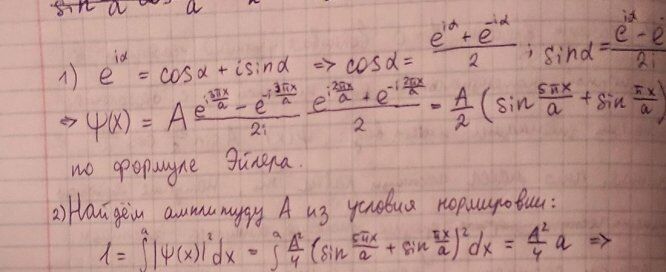 sin a cos a
1) e^{iα} = cosα + i sinα => cosα = \frac{e^{iα} + e^{-iα}}{2} ; sinα = \frac{e^{iα} - e}{2i}
=> ψ(x) = A \frac{e^{i\frac{3πx}{a}} - e^{-i\frac{3πx}{a}}}{2i} \frac{e^{i\frac{2πx}{a}} + e^{-i\frac{2πx}{a}}}{2} = \frac{A}{2} (sin \frac{5πx}{a} + sin \frac{πx}{a})
по формуле Эйлера.
2) Найдём амплитуду A из условия нормировки:
1 = \int_0^a |ψ(x)|^2 dx = \int_0^a \frac{A^2}{4} (sin \frac{5πx}{a} + sin \frac{πx}{a})^2 dx = \frac{A^2}{4} a =>